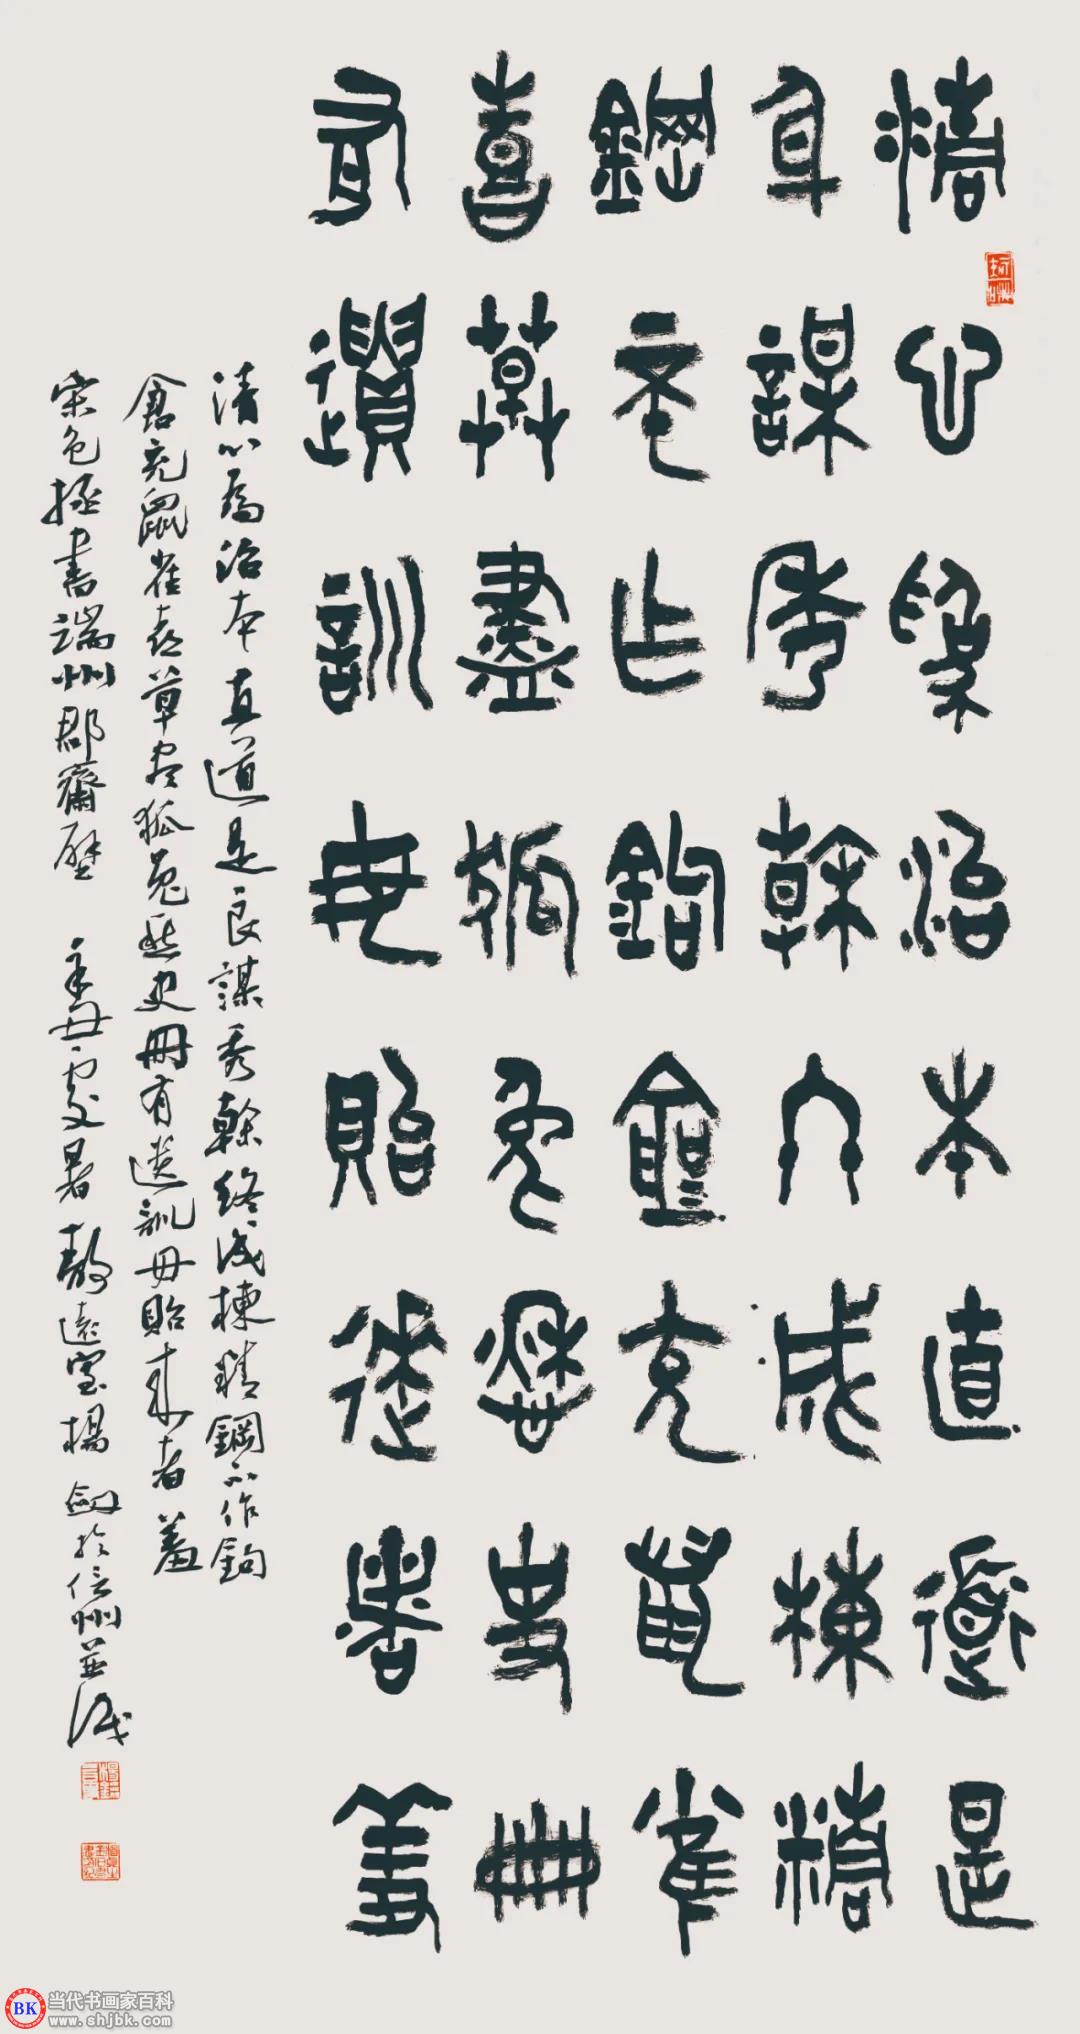 清心為治本直道是
良謀秀榦終成棟精
鋼不作鉤倉充鼠雀
喜草盡狐兔愁史冊
有遺訓毋貽來者羞
清心為治本直道是良謀秀榦終成棟精鋼不作鉤
倉充鼠雀喜草盡狐兔愁史冊有遺訓毋貽来者羞
宋包拯書端州郡齋壁 辛丑處暑 静遠室楊劍於信州并識
BK 当代书画家百科
www.shjbk.com